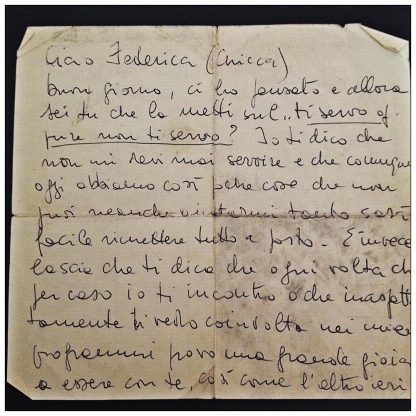 Ciao Federica (Chicca)
buon giorno, ci ho pensato e allora
sei tu che la metti sul "ti servo op
pure non ti servo? Io ti dico che
non mi devi mai servire e che comunque
oggi abbiamo così poche cose che non
puoi neanche aiutarmi tanto sarà
facile rimettere tutto a posto. E invece
lascia che ti dica che ogni volta ch
per caso io ti incontro o che inaspet
tamente ti vedo coinvolta nei miei
programmi provo una grande gioia
a essere con te, così come l'altro ieri